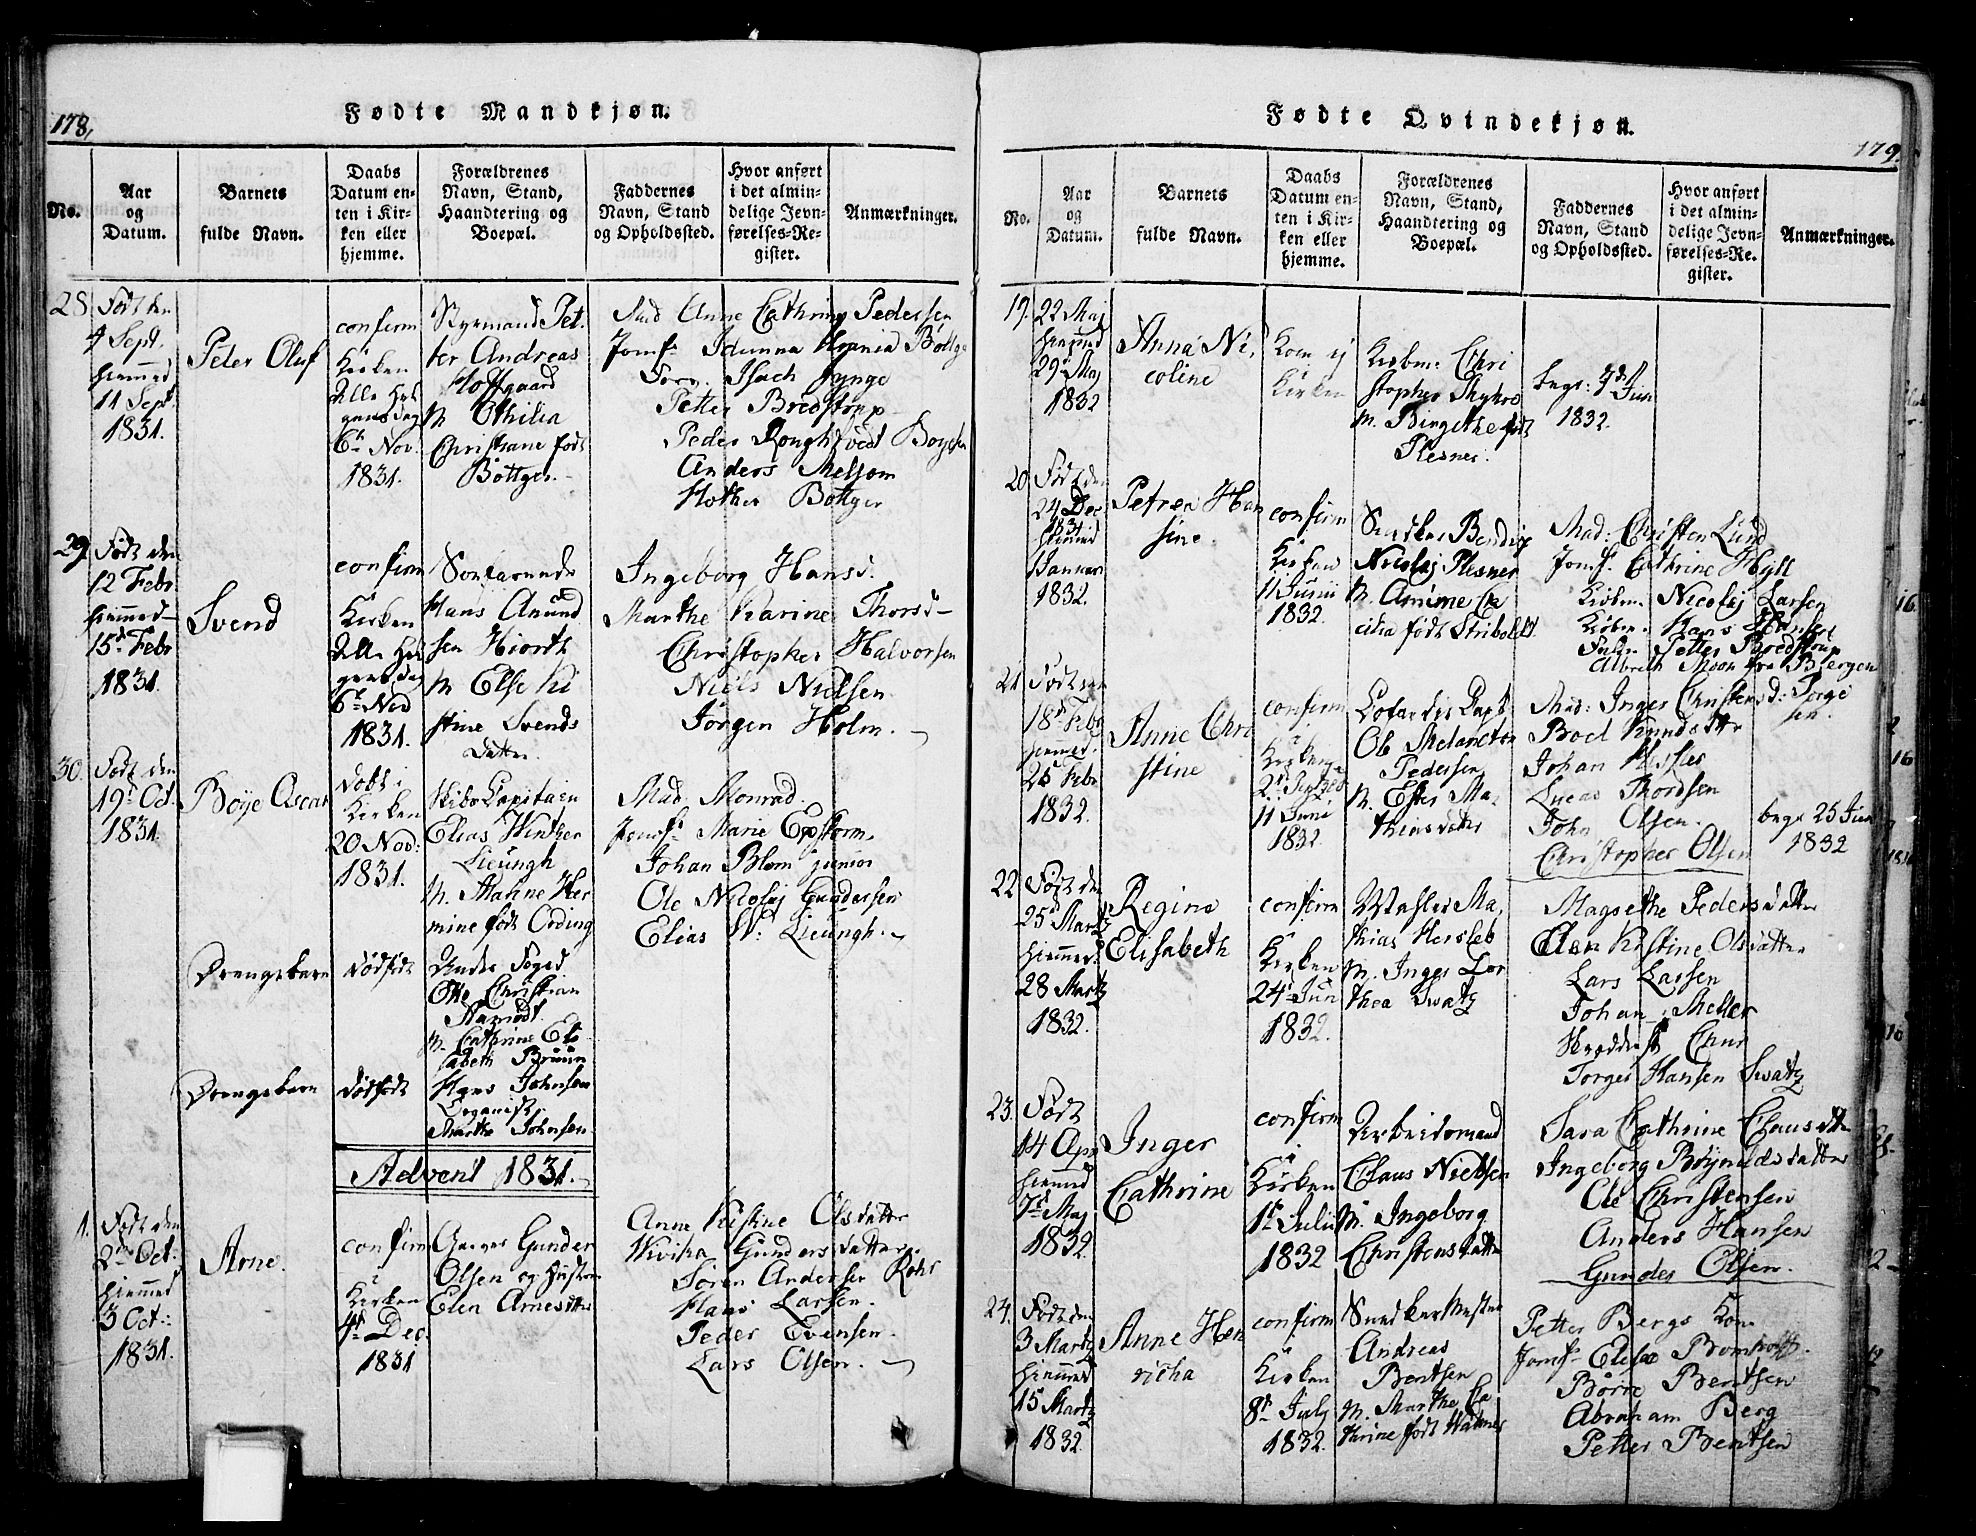 178,
Fødte Mandkjøn.
No.
Aar
og
Datum.
Barnets
fulde Navn.
Daabs
Datum en-
ten i Kir-
ken eller
hjemme.
Forældrenes
Navn, Stand,
Haandtering og
Boepæl.
Faddernes
Navn, Stand
og Opholdssted.
Hvor anført
i det almin-
delige Jevn-
førelses-Re-
gister.
Anmærkninger.
28
Født den
4 Sept.
hiemmed
11 Sept.
1831.
Peter Oluf
confirm
Kirken
Alle Hel
gens dag
6te Nov.
1831.
Styrmand Pet.
ter Andreas
Hoffgaard
M Othilia
Christiane født
Bøttger.
Mad Anne Cathrine Pedersen
Jomf. Idunna Urania Bøttger
Isach Jynge
Petter Bredstrup
Peder Rougtvedt Boyesen
Anders Melsom
Hother Bøttger
29.
Født den
12 Febr
hiemmed
15d Febr
1831.
Svend
confirm
Kirken
Alle Hel
gens dag
6te Nov
1831.
Søefarende
Hans Anund
sen Hiorth
M Else Ki
stine Svends
Datter.
Ingeborg Hansd.
Marthe Karine Thorsd
Christopher Halvorsen
Niels Nielsen
Jörgen Holm.
30.
Født den
19d Oct.
1831.
Boye Oscar
Døbt i
Kirken
20 Nov:
1831.
Skibs Capitain
Elias Winther
Lieungh
M. Maline Her
mine født Ording
Mad. Monrad.
Jomf. Marie Egstorm
Johan Blom junior
Ole Nicolaj Gundersen
Elias W. Lieungh.
Drengebarn
dødfødt
Under Foged
Otto Christian
Stamødt.
M. Cathrine Eli
sabeth Bruun
Drengebarn
dødfødt
Hans Johnsen
Organist,
Marthe Johnsen
Advent 1831.
1.
Født den
2den Oct:
hiemmed
3 Oct:
1831.
Arne.
confirm
i
Kirken
4d Dec.
1831
Gunder
Olsen og Hustru
Elen Arnesdtter
Anne Kistine Olsdatter
Wivika Gundersdatter
Søren Andersen Rohs
Hans Larsen.
Peder Evensen.
Lars Olsen.
Fødte Qvindekjøn.
179.
No.
Aar
og
Datum.
Barnets
fulde Navn.
Daabs
Datum en-
ten i Kir-
ken eller
hjemme.
Forældrenes
Navn, Stand,
Haandtering og
Boepæl.
Faddernes
Navn, Stand
og Opholdssted.
Hvor anført
i det almin-
delige Jevn-
førelses-Re-
gister.
Anmærkninger.
19.
22 Maj
hiemmed
29d Maj
1832
Anna Ni,
coline
Kom ej
Kirken
Kiøbm: Chri
stopher Myhre
M. Birgethe født
Plesner.
begr: 7d Juni
1832.
20
Født den
24 Dec
1831.
hiemmed
Januar
1832.
Petrea Han
sine.
confirm
Kirken
11 Junii
1832.
Nicolaj Plesner
M. Anime Ce
cilia født Stribolt
Mad: Christen Lund
Jomf. Cathrine Hyll
Kiøbm. Nicolaj Larsen
Kiøbm. Hans
Petter Bredstrup
Albreth Moon fra Bergen
21.
Født den
18d Febr
hiemmed.
26 Febr
1832.
Anne Chri
stine
confirm
i
Kirken
2d Pintsed
11 Juni
1832.
Ole Melancton
Pedersen
M. Ester Ma,
thiasdatter
Mad: Inger Christensd: Torge
sen.
Boel Knudsdtter
Johan Kesler
Lucas Thordsen
John Olsen.
Christopher Olsen
begr 25 Juni
1832
22.
Født den
25d Martz
hiemmed
28 Martz
1832.
Regine
Elisabeth
confirm
Kirken
24d Juni
1832.
Mahler Ma,
thias Hersleb
M. Inger Dor
thea Swatz
Magrethe Pedersdatter
Elen Kistine Olsdatter
Lars Larsen
Johan Møller
Torger Hansen Swatz
23.
Født
14 Apr
hiemmed
7d Maj
1832.
Inger
Cathrine
confirm
i
Kirken
1d Julii
1832
Arbeidsmand
Claus Nielsen
M. Ingeborg
Christensdatter
Sara Cathrine Clausdtter
Ingeborg Bøynildsdatter
Ole Christensen
Anders Hansen
Gunder Olsen.
24.
Født den
3 Martz
hiemmed
15 Martz
1832.
Anne Hen
richa
confirm
i
Kirken
8d July
1832.
Snedker Mester
Andreas
Bentsen
M. Marthe Ca
thrine født
Petter Bergs Kone
Jomf. Elise Bomhoff.
Børre Bentsen
Abraham Berg
Petter Bentsen